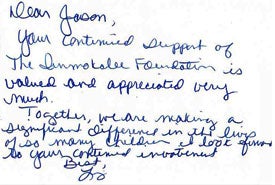 Dear Jason,
Your continued support of
The Immokalee Foundation is
valued and appreciated very
much.
Together, we are making a
significant difference in the lives
of so many children. I look forward
to your continued involvement
Best,
Liz